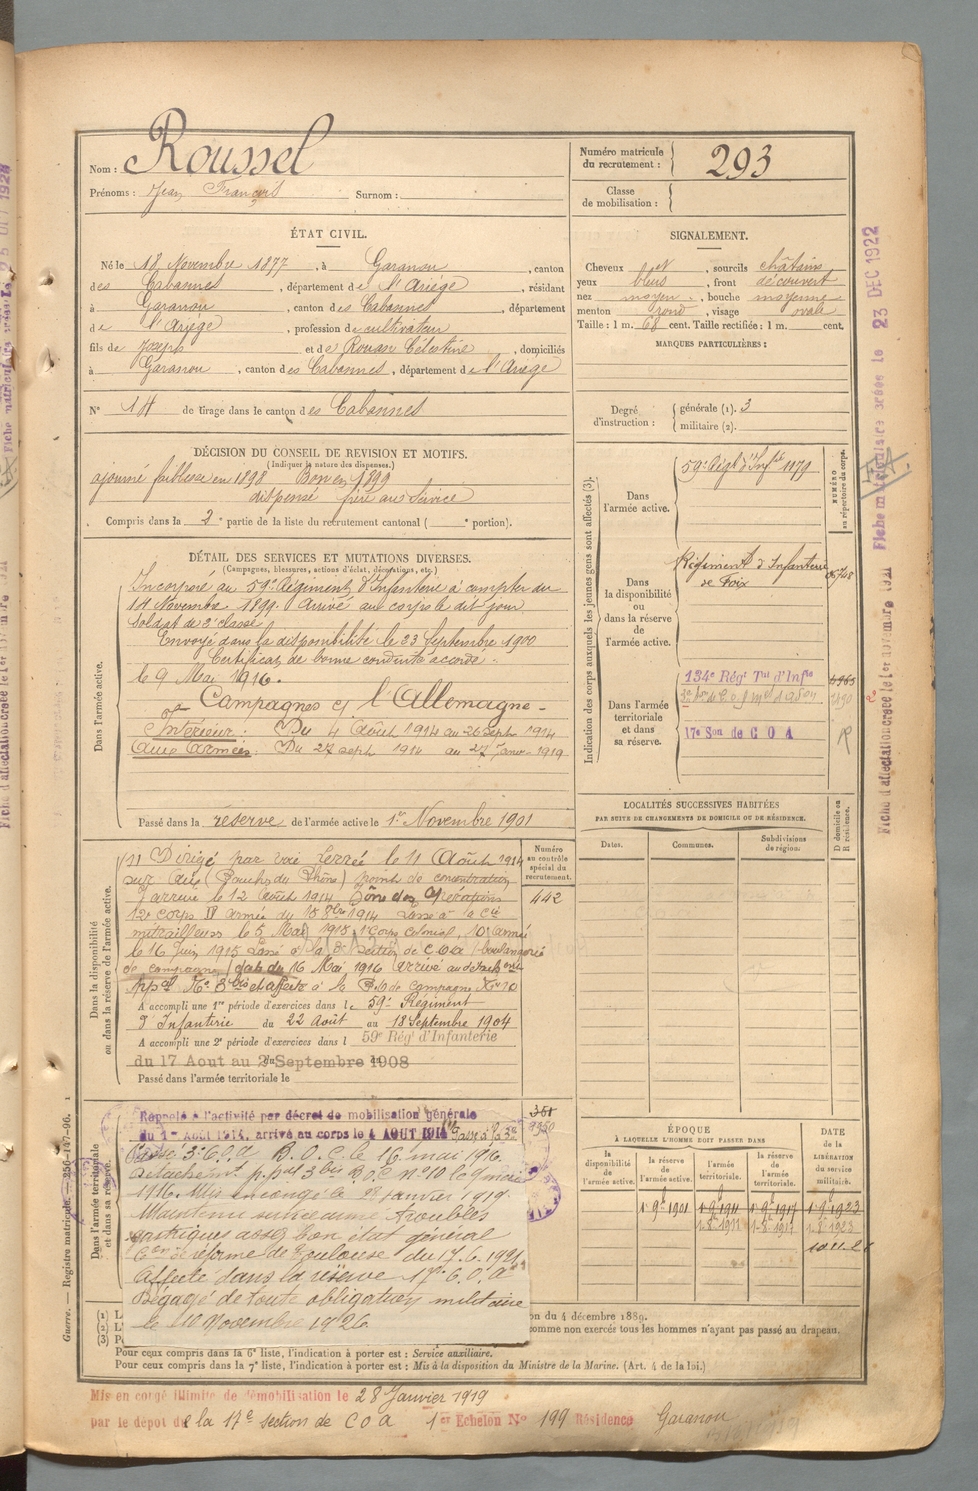 Nom : Roussel
Prénoms : Jean François Surnom :
Numéro matricule du recrutement : 293
Classe de mobilisation :
ÉTAT CIVIL.
Né le 18 Novembre 1877, à Garanou, canton
des Cabannes, département de l'Ariège, résidant
à Garanou, canton des Cabannes, département
de l'Ariège, profession de cultivateur
fils de Joseph et de Rouan Célestine, domiciliés
à Garanou, canton des Cabannes, département de l'Ariège
N° 14 de tirage dans le canton des Cabannes
SIGNALEMENT.
Cheveux et, sourcils châtains
yeux bleus, front découvert
nez moyen, bouche moyenne
menton rond, visage ovale
Taille : 1 m. 68 cent. Taille rectifiée : 1 m. cent.
MARQUES PARTICULIÈRES :
Degré d'instruction : générale (1). 3
militaire (2).
DÉCISION DU CONSEIL DE REVISION ET MOTIFS.
(Indiquer la nature des dispenses.)
ajourné faiblesse en 1898 Bon en 1899
dispensé frère au service
Compris dans la 2e partie de la liste du recrutement cantonal ( e portion).
DÉTAIL DES SERVICES ET MUTATIONS DIVERSES.
(Campagnes, blessures, actions d'éclat, décorations, etc.)
Dans l'armée active.
Incorporé au 59e Régiment d'Infanterie à compter du
14 Novembre 1899. Arrivé au corps le dit jour
Soldat de 2e classe
Envoyé dans la disponibilité le 23 Septembre 1900
Certificat de bonne conduite accordé.
le 9 Mai 1916.
Campagnes ct l'Allemagne
Intérieur : Du 4 Août 1914 au 26 sept 1914
Aux Armées : Du 27 sept 1914 au 27 Janv 1919
Passé dans la réserve de l'armée active le 1er Novembre 1901
Dans la disponibilité ou dans la réserve de l'armée active.
Numéro au contrôle spécial du recrutement.
442
Dirigé par voie ferrée le 11 Août 1914
sur Aix (Bouches du Rhône) point de concentration
y arrive le 12 Août 1914 Zône des Opérations
12e Corps IV armée du 18 8bre 1914 Passé à la Cie
mitrailleuses le 5 Mai 1915 1er Corps Colonial, 10e armée
le 16 Juin 1915 Passé à la 3e Section de C O A (boulangerie
de campagne) du 16 Mai 1916 arrivé au détachemt
A accompli une 1re période d'exercices dans le 59e Régiment
d'Infanterie du 22 Août au 18 Septembre 1904
A accompli une 2e période d'exercices dans l 59e Rég' d'Infanterie
du 17 Aout au 2 Septembre 1908
Passé dans l'armée territoriale le
Dans l'armée territoriale et dans sa réserve.
351
9350
Rappelé à l'activité par décret de mobilisation générale
du 1er Août 1914, arrivé au corps le 4 AOUT 1914
B. O. C. le 16 mai 1916.
1916. Mis en congé le 28 janvier 1919.
Maintenu service armé troubles
gastriques assez bon état général
Con de réforme de Toulouse du 17.6.1921.
Affecté dans la réserve 17e C.O.A
Dégagé de toute obligation militaire
le 10 Novembre 1926
Indication des corps auxquels les jeunes gens sont affectés (3).
NUMÉRO au répertoire du corps.
Dans l'armée active. 59e Régt d'Infrie 1179
Dans la disponibilité ou dans la réserve de l'armée active. Régiment d'Infanterie
de Foix
Dans l'armée territoriale et dans sa réserve.
134e Rég' Tal d'Infie
17e Son de C O A
LOCALITÉS SUCCESSIVES HABITÉES
PAR SUITE DE CHANGEMENTS DE DOMICILE OU DE RÉSIDENCE.
D domicile ou R résidence.
Dates. Communes. Subdivisions de région.
ÉPOQUE
À LAQUELLE L'HOMME DOIT PASSER DANS
DATE de la LIBÉRATION du service militaire.
la disponibilité de l'armée active. la réserve de l'armée active. l'armée territoriale. la réserve de l'armée territoriale.
1-9bre 1901 1-9bre 1911 1-9bre 1917 1-9bre 1923
1-8-1911 1-8-1917 1-8-1923
10.11.26
(1) L
(2) L'
(3) P
on du 4 décembre 1889.
comme non exercés tous les hommes n'ayant pas passé au drapeau.
Pour ceux compris dans la 6e liste, l'indication à porter est : Service auxiliaire.
Pour ceux compris dans la 7e liste, l'indication à porter est : Mis à la disposition du Ministre de la Marine. (Art. 4 de la loi.)
Mis en congé illimité de démobilisation le 28 Janvier 1919
par le dépot de la 17e section de C O A 1er Echelon N° 199 Résidence Garanou
Guerre. — Registre matricule. — 256-147-96.
23 DEC 1922
Fiche d'affectation créée le 1er novembre 1921